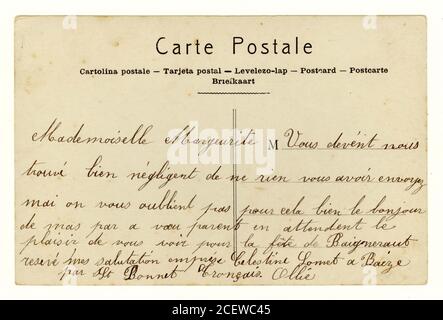 Carte Postale
Cartolina postale — Tarjeta postal — Levelezo-lap — Postcard — Postcarte
Briefkaart
Mademoiselle Margurite M Vous devént nous
trouvé bien négligent de ne rien vous avoir envoyez
mai on vous oublient pas pour cela bien le bonjour
de mas par a vœu parent en attendent le
plaisir de vous voir pour la fête de Baigneraut
reseré mes salutation emprise Celestine Lomet a Baize
par St Bonnet Tronçais Ollié
alamy
Image ID: 2CEWC45
www.alamy.com